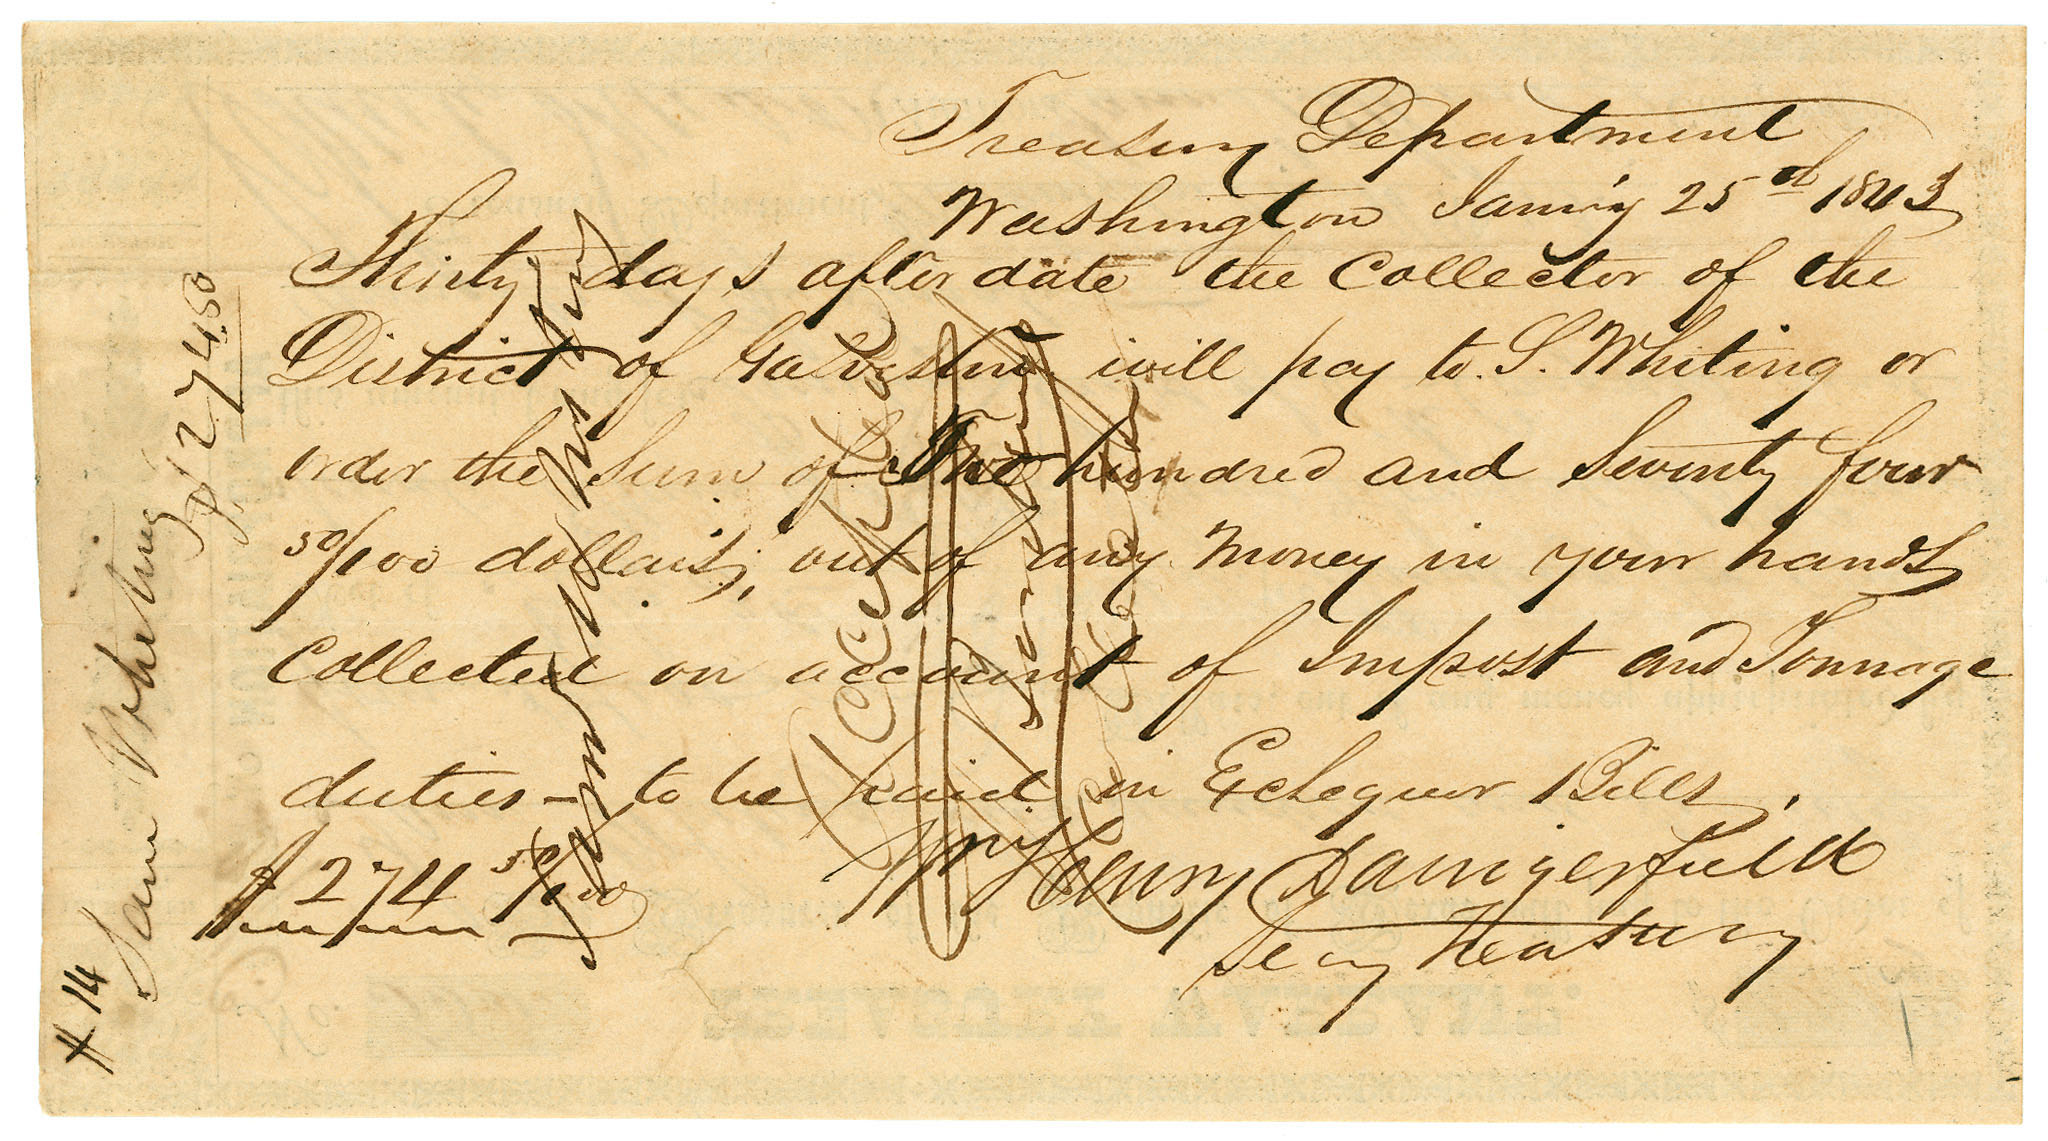 Treasury Department
Washington Jan'y 25th 1843
Thirty days after date the Collector of the
District of Galveston will pay to S. Whiting or
order the Sum of Two hundred and Seventy four
50/100 dollars, out of any money in your hands
Collected on account of Impost and Tonnage
duties - to be paid in Echequer Bills.
$274 50/100
Wm Henry Daingerfield
Secy Treasury
# 14
Sam Whiting
$274.50
Accepted